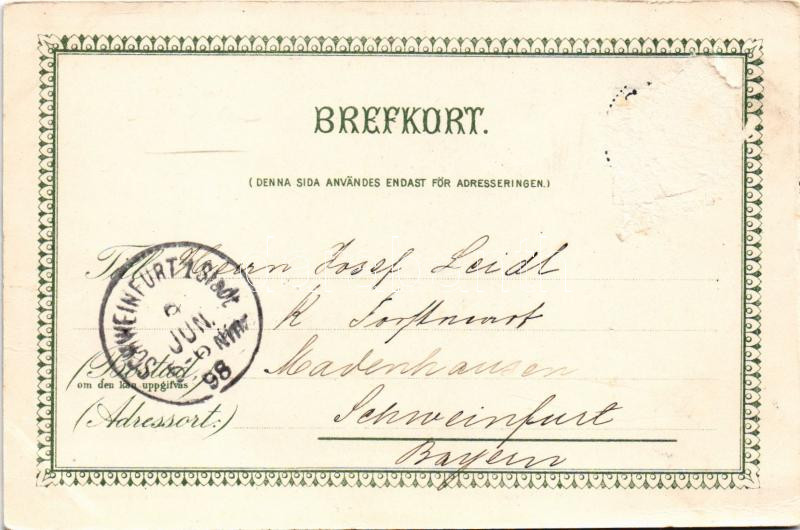 BREFKORT.
(DENNA SIDA ANVÄNDES ENDAST FÖR ADRESSERINGEN.)
Till Herrn Josef Leidl
K Forstwart
(Bostad,
om den kan uppgifvas
Madenhausen
(Adressort:)
Schweinfurt
Bayern
SCHWEINFURT 1 Stadt
JUN.
5-6 Nm.
98